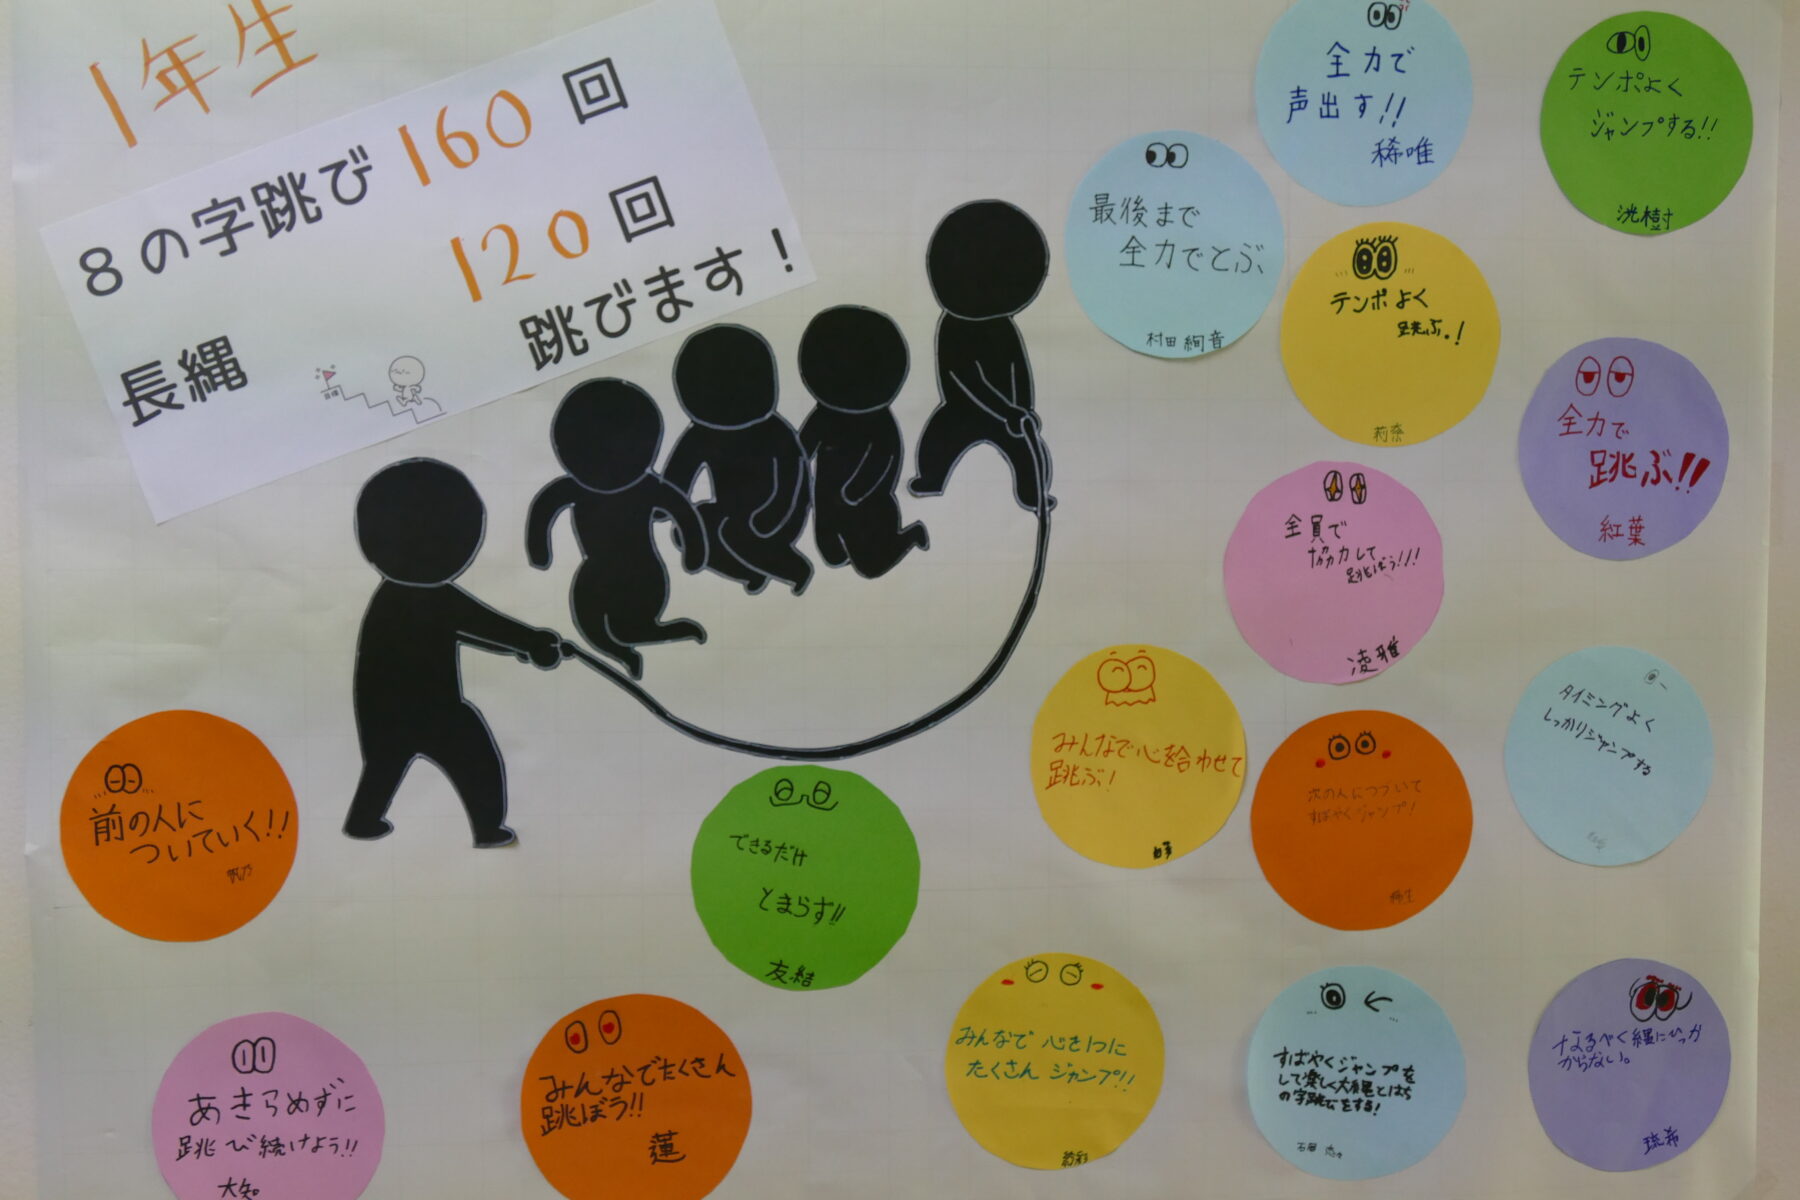 1年生
8の字跳び 160 回
120 回
長縄
跳びます！
全力で
声出す!!
稀唯
テンポよく
ジャンプする!!
洸樹
最後まで
全力でとぶ
村田 絢音
テンポよく
跳ぶ。!
莉奈
全力で
跳ぶ!!
紅葉
全員で
協力して
跳ぼう!!!
凌雅
みんなで心を合わせて
跳ぶ!
タイミングよく
しっかりジャンプする
次の人につづいて
すばやくジャンプ!
柊生
前の人に
ついていく!!
帆乃
できるだけ
とまらず!!
友結
あきらめずに
跳び続けよう!!
大知
みんなでたくさん
跳ぼう!!
蓮
みんなで 心を1つに
たくさん ジャンプ!!
すばやくジャンプを
して楽しく大縄とはち
の字跳びをする!
なるべく縄にひっか
からない。
琉希